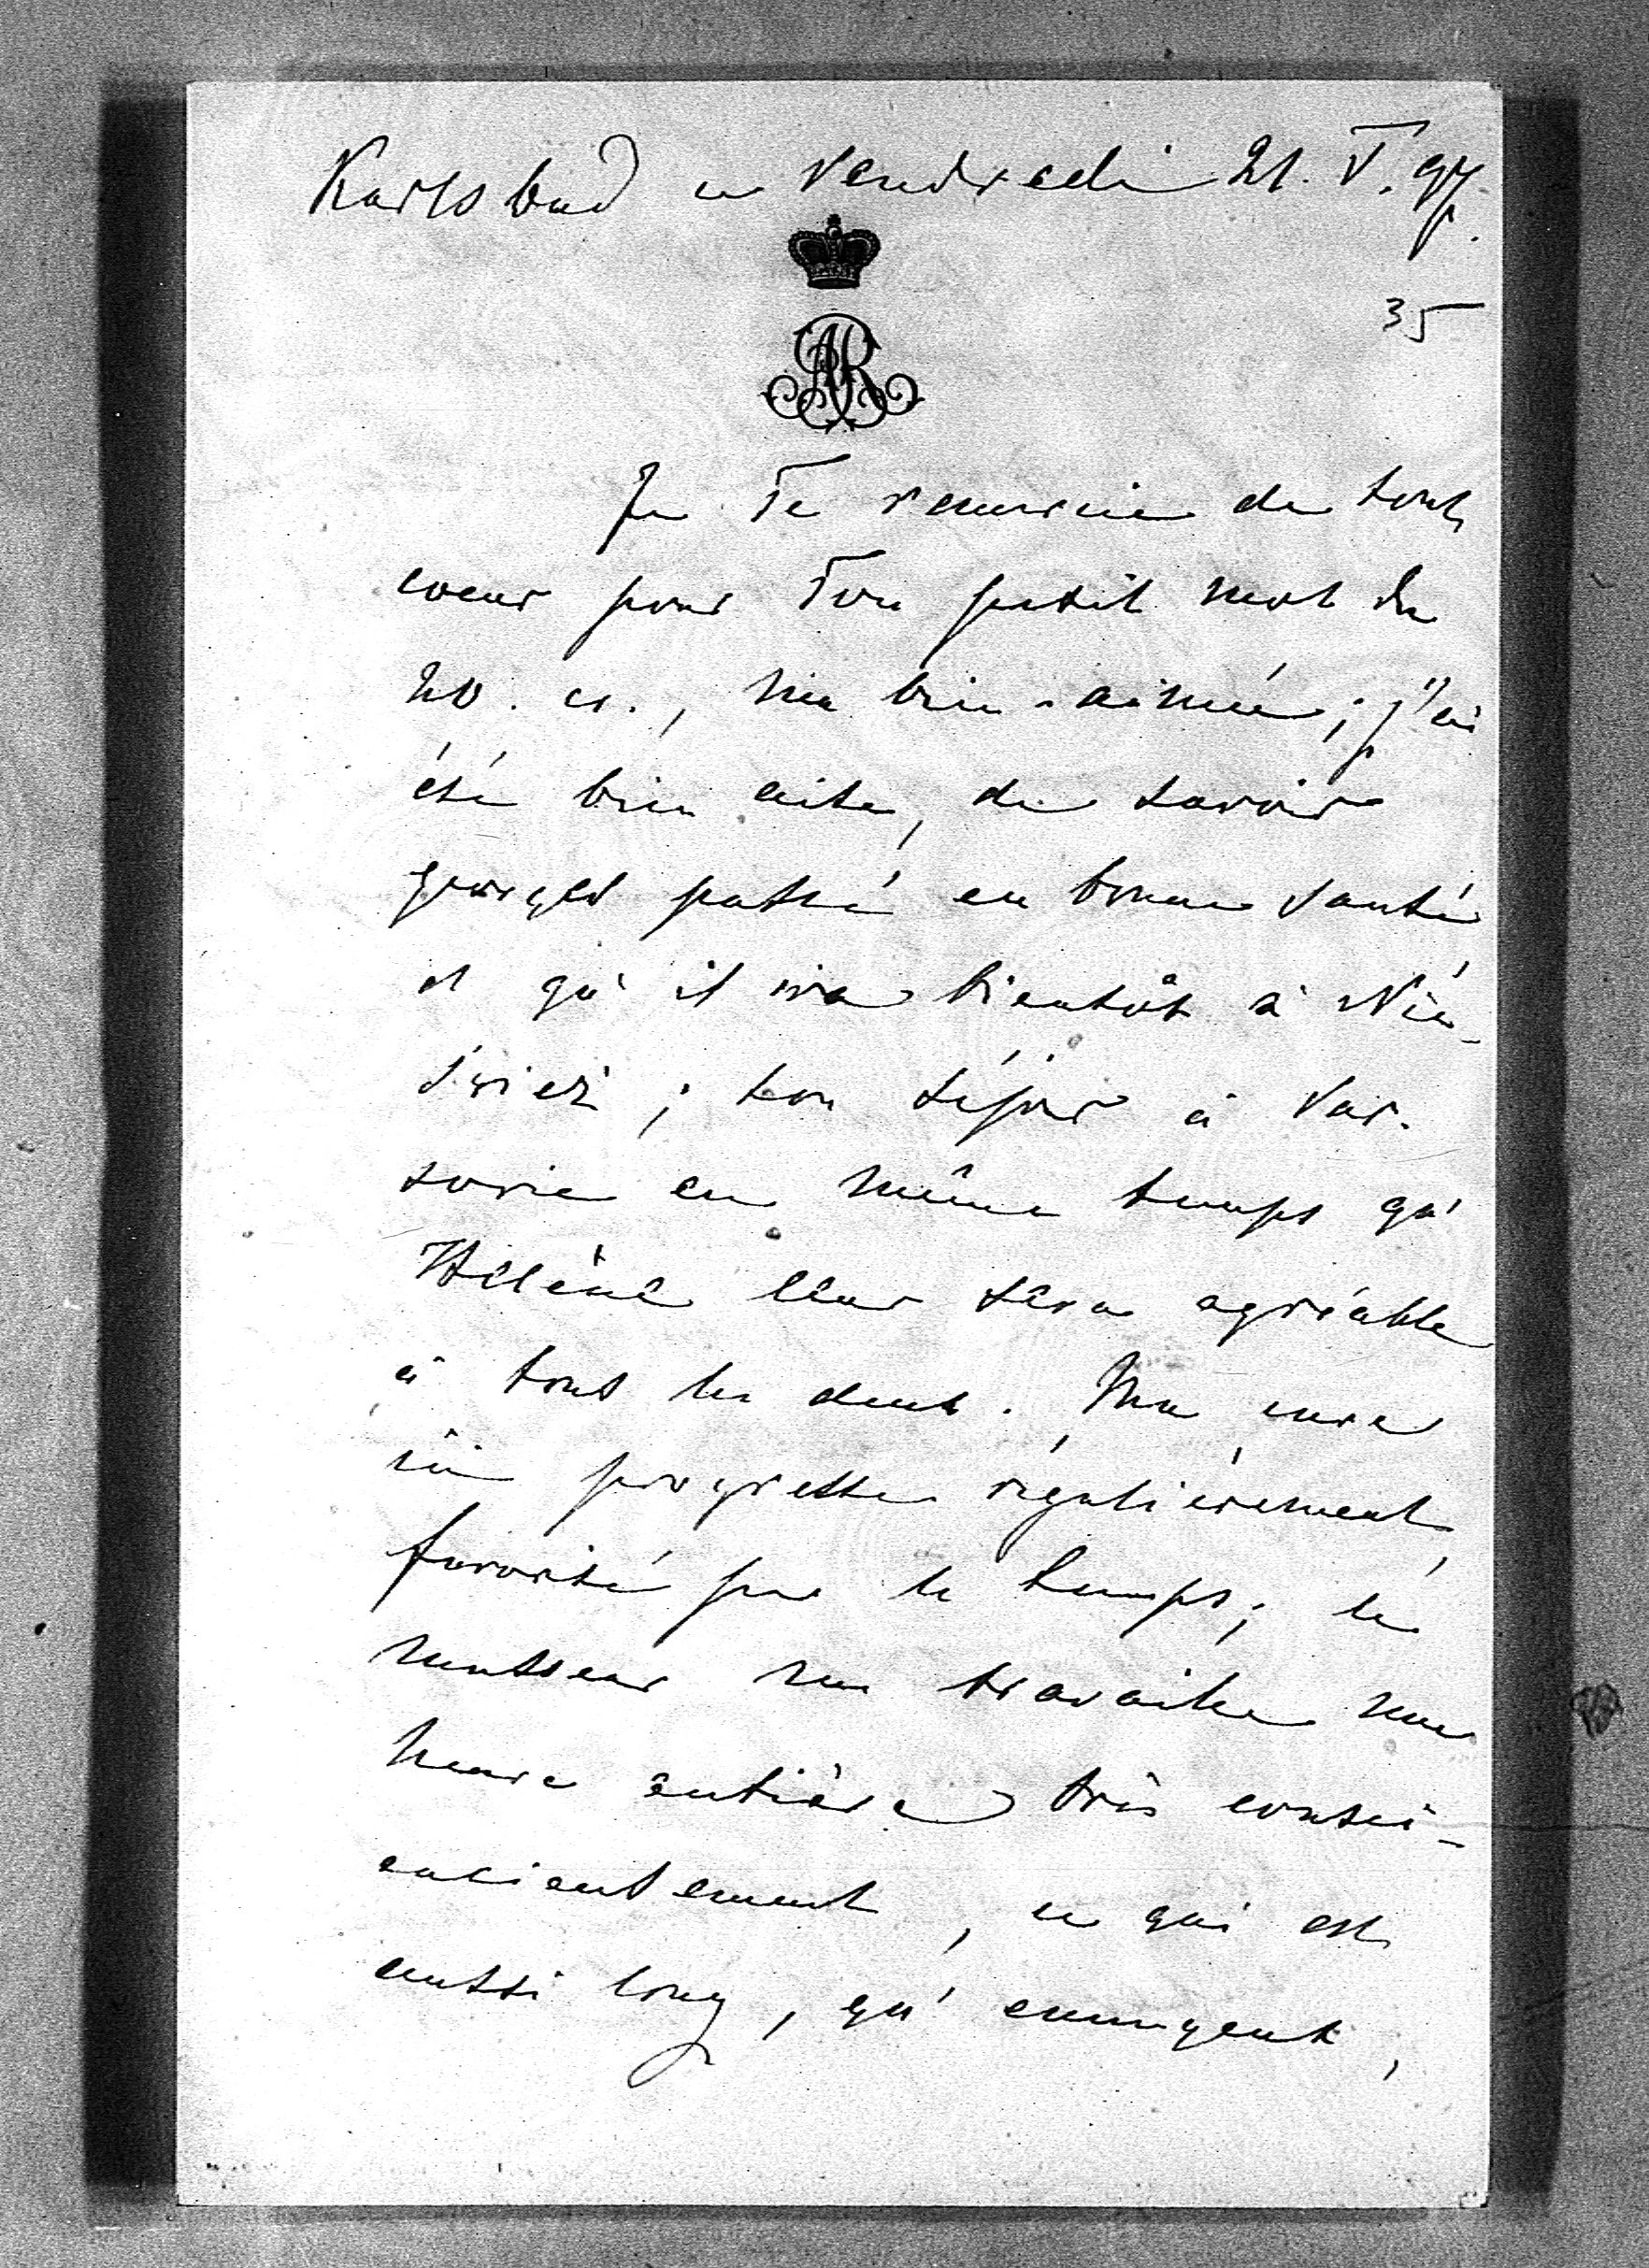 Karlsbad ce Vendredi 21. V. 97.
35
AR
Je Te remercie de tout
coeur pour Ton petit mot du
20. ct., ma bien-aimée; j'ai
été bien aise, de savoir
Georges passé en bonne santé
et qu'il ira bientôt à Nie-
śwież; son séjour à Var-
sovie en même temps qu'
Hélène leur sera agréable
à tous les deux. Ma cure
ici progresse régulièrement,
favorisé par le temps; le
masseur me travaille une
heure entière très consci-
encieusement, ce qui est
aussi long, qu'